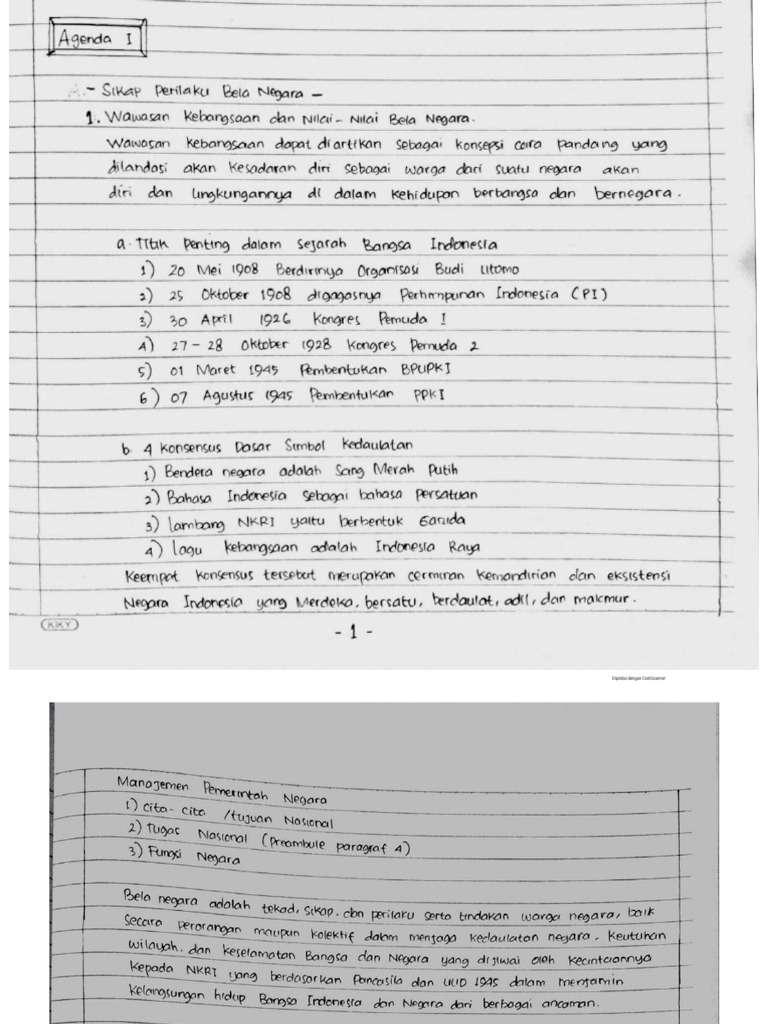 Agenda I
A. - Sikap Perilaku Bela Negara -
1. Wawasan Kebangsaan dan Nilai - Nilai Bela Negara.
Wawasan kebangsaan dapat diartikan sebagai konsepsi cara pandang yang
dilandasi akan kesadaran diri sebagai warga dari suatu negara akan
diri dan lingkungannya di dalam kehidupan berbangsa dan bernegara.
a. Titik Penting dalam Sejarah Bangsa Indonesia
1) 20 Mei 1908 Berdirinya Organisasi Budi Utomo
2) 25 Oktober 1908 digagasnya Perhimpunan Indonesia (PI)
3) 30 April 1926 Kongres Pemuda I
4) 27 - 28 Oktober 1928 Kongres Pemuda 2
5) 01 Maret 1945 Pembentukan BPUPKI
6) 07 Agustus 1945 Pembentukan PPKI
b. 4 Konsensus Dasar Simbol Kedaulatan
1) Bendera negara adalah Sang Merah Putih
2) Bahasa Indonesia sebagai bahasa Persatuan
3) lambang NKRI yaitu berbentuk Garuda
4) lagu kebangsaan adalah Indonesia Raya
Keempat konsensus tersebut merupakan cerminan kemandirian dan eksistensi
Negara Indonesia yang Merdeka, bersatu, berdaulat, adil, dan makmur.
KIKY
- 1 -
Dipindai dengan CamScanner
Manajemen Pemerintah Negara
1) Cita - cita /tujuan Nasional
2) Tugas Nasional (Preambule paragraf 4)
3) Fungsi Negara
Bela negara adalah tekad, sikap, dan perilaku serta tindakan warga negara, baik
secara perorangan maupun kolektif dalam menjaga kedaulatan negara, keutuhan
wilayah, dan keselamatan Bangsa dan Negara yang dijiwai oleh kecintaannya
kepada NKRI yang berdasarkan Pancasila dan UUD 1945 dalam menjamin
kelangsungan hidup Bangsa Indonesia dan Negara dari berbagai ancaman.